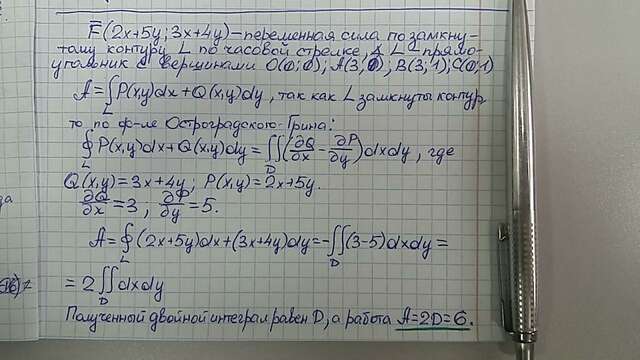 F̅(2x+5y; 3x+4y) – переменная сила по замкну-
тому контуру L по часовой стрелке, а L – прямо-
угольник с вершинами O(0;0), A(3,0), B(3;1), C(0,1)
A = ∫_L P(x,y)dx + Q(x,y)dy, так как L замкнуты контур
то по ф-ле Остроградского-Грина:
∮_L P(x,y)dx + Q(x,y)dy = ∬_D (∂Q/∂x – ∂P/∂y) dxdy, где
Q(x,y) = 3x+4y; P(x,y) = 2x+5y.
∂Q/∂x = 3; ∂P/∂y = 5.
A = ∮_L (2x+5y)dx + (3x+4y)dy = –∬_D (3–5)dxdy =
= 2∬_D dxdy
Полученный двойной интеграл равен D, а работа A=2D=6.